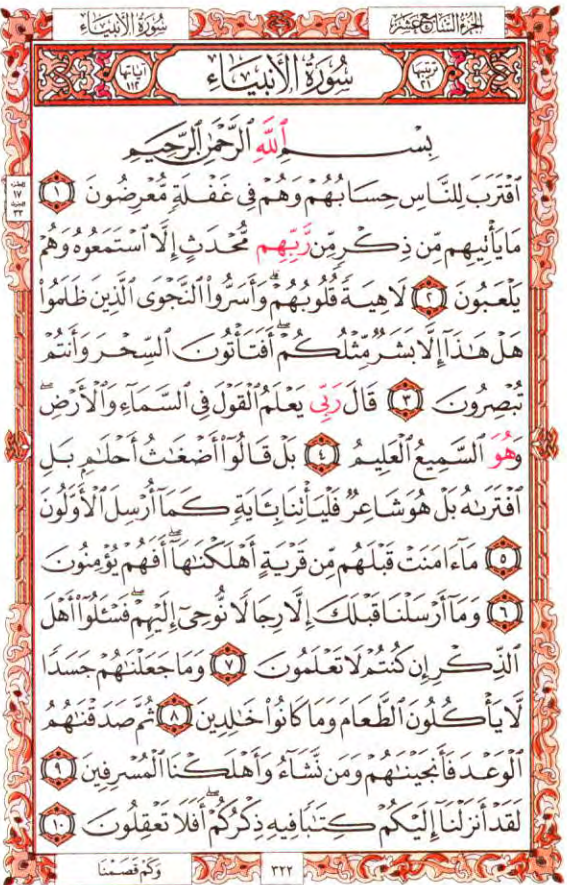 سُورَةُ الأَنبِيَاءِ
الجُزءُ السَّابِعَ عَشَر
آيَاتُهَا ١١٢
سُورَةُ الأَنبِيَاءِ
تَرتِيبُهَا ٢١
بِسْمِ ٱللَّهِ ٱلرَّحْمَٰنِ ٱلرَّحِيمِ
ٱقْتَرَبَ لِلنَّاسِ حِسَابُهُمْ وَهُمْ فِى غَفْلَةٍ مُّعْرِضُونَ ١
مَا يَأْتِيهِم مِّن ذِكْرٍ مِّن رَّبِّهِم مُّحْدَثٍ إِلَّا ٱسْتَمَعُوهُ وَهُمْ
يَلْعَبُونَ ٢ لَاهِيَةً قُلُوبُهُمْ ۗ وَأَسَرُّوا۟ ٱلنَّجْوَى ٱلَّذِينَ ظَلَمُوا۟
هَلْ هَٰذَآ إِلَّا بَشَرٌ مِّثْلُكُمْ ۖ أَفَتَأْتُونَ ٱلسِّحْرَ وَأَنتُمْ
تُبْصِرُونَ ٣ قَالَ رَبِّى يَعْلَمُ ٱلْقَوْلَ فِى ٱلسَّمَآءِ وَٱلْأَرْضِ ۖ
وَهُوَ ٱلسَّمِيعُ ٱلْعَلِيمُ ٤ بَلْ قَالُوٓا۟ أَضْغَٰثُ أَحْلَٰمٍۭ بَلِ
ٱفْتَرَىٰهُ بَلْ هُوَ شَاعِرٌ فَلْيَأْتِنَا بِـَٔايَةٍ كَمَآ أُرْسِلَ ٱلْأَوَّلُونَ
٥ مَآ ءَامَنَتْ قَبْلَهُم مِّن قَرْيَةٍ أَهْلَكْنَٰهَآ ۖ أَفَهُمْ يُؤْمِنُونَ
٦ وَمَآ أَرْسَلْنَا قَبْلَكَ إِلَّا رِجَالًا نُّوحِىٓ إِلَيْهِمْ ۖ فَسْـَٔلُوٓا۟ أَهْلَ
ٱلذِّكْرِ إِن كُنتُمْ لَا تَعْلَمُونَ ٧ وَمَا جَعَلْنَٰهُمْ جَسَدًا
لَّا يَأْكُلُونَ ٱلطَّعَامَ وَمَا كَانُوا۟ خَٰلِدِينَ ٨ ثُمَّ صَدَقْنَٰهُمُ
ٱلْوَعْدَ فَأَنجَيْنَٰهُمْ وَمَن نَّشَآءُ وَأَهْلَكْنَا ٱلْمُسْرِفِينَ ٩
لَقَدْ أَنزَلْنَآ إِلَيْكُمْ كِتَٰبًا فِيهِ ذِكْرُكُمْ ۖ أَفَلَا تَعْقِلُونَ ١٠
١٧
٣٣
٣٢٢
وَكَمْ قَصَمْنَا